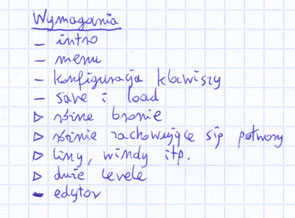 Wymagania
- intro
- menu
- konfiguracja klawiszy
- save i load
▷ różne bronie
▷ różnie zachowujące się potwory
▷ liny, windy itp.
▷ duże levele
- edytor